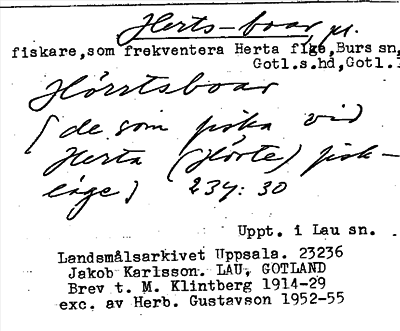 Herts-boar, pl.
fiskare,som frekventera Herta flge,Burs sn,
Gotl.s.hd,Gotl.
Hörrtsboar
(de som fiska vid
Herta (Hörte) fisk-
läge) 234: 30
Uppt. i Lau sn.
Landsmålsarkivet Uppsala. 23236
Jakob Karlsson. LAU, GOTLAND
Brev t. M. Klintberg 1914-29
exc. av Herb. Gustavson 1952-55